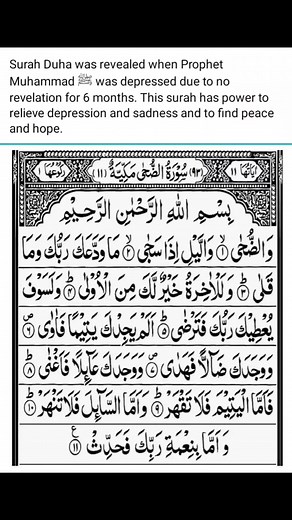 Surah Duha was revealed when Prophet
Muhammad ﷺ was depressed due to no
revelation for 6 months. This surah has power to
relieve depression and sadness and to find peace
and hope.
اٰیَاتُهَا ۱۱ (۹۳) سُوْرَةُ الضُّحٰی مَكِّیَّةٌ (۱۱) رُكُوْعُهَا ۱
بِسْمِ اللّٰهِ الرَّحْمٰنِ الرَّحِیْمِ
وَالضُّحٰی ۱ وَالَّیْلِ اِذَا سَجٰی ۲ مَا وَدَّعَكَ رَبُّكَ وَمَا
قَلٰی ۳ وَلَلْاٰخِرَةُ خَیْرٌ لَّكَ مِنَ الْاُوْلٰی ۴ وَلَسَوْفَ
یُعْطِیْكَ رَبُّكَ فَتَرْضٰی ۵ اَلَمْ یَجِدْكَ یَتِیْمًا فَاٰوٰی ۶
وَوَجَدَكَ ضَآلًّا فَهَدٰی ۷ وَوَجَدَكَ عَآئِلًا فَاَغْنٰی ۸
فَاَمَّا الْیَتِیْمَ فَلَا تَقْهَرْ ۹ وَاَمَّا السَّآئِلَ فَلَا تَنْهَرْ ۱۰
وَ اَمَّا بِنِعْمَةِ رَبِّكَ فَحَدِّثْ ۱۱ ع